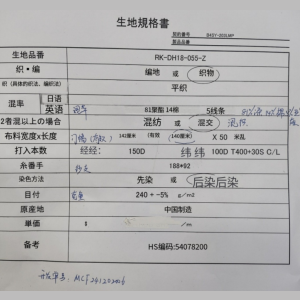 生地規格書
契約番号 BASY-20SUMP
製品品番
生地品番 RK-DH18-055-Z
织・编 编地 或 织物
织（具体的织法、编织法） 平织
混率 日语
英语 混率 81聚酯 14棉 5线条
2者混以上の場合 混纺 或 混交
布料宽度×长度 门幅 141厘米 （有效 140厘米） X 50 米乱
打入本数 经经: 150D 纬纬 100D T400+30S C/L
糸番手 纱支 188*92
染色方法 先染 / 后染后染
目付 克重 240 + -5% g/m2
原産地 中国制造
単価 / m
备考 HS编码:54078200